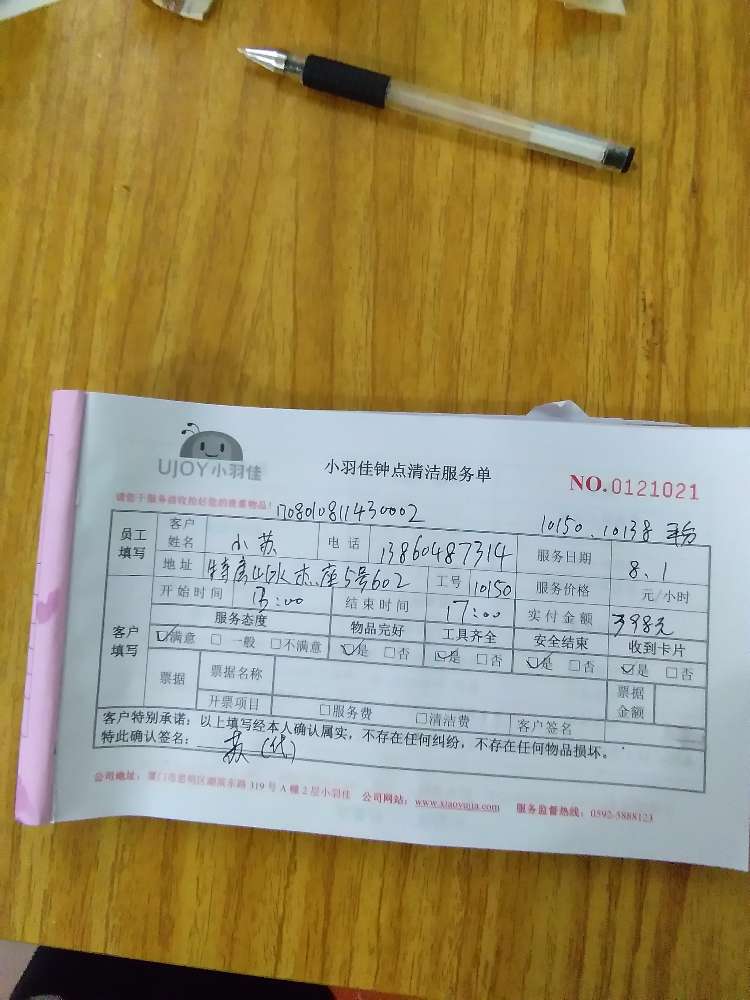 UJOY小羽佳
小羽佳钟点清洁服务单
NO.0121021
请您于服务前收拾好您的贵重物品!
170801081143 0002
10150、10138
员工填写 客户姓名 小苏 电话 13860487314 服务日期 8.1
地址 特房山水杰座5号602 工号 10150 服务价格 元/小时
客户填写 开始时间 13:00 结束时间 17:00 实付金额 398元
服务态度 物品完好 工具齐全 安全结束 收到卡片
☑满意 □一般 □不满意 ☑是 □否 ☑是 □否 ☑是 □否 ☑是 □否
票据 票据名称 票据金额
开票项目 □服务费 □清洁费 客户签名
客户特别承诺：以上填写经本人确认属实，不存在任何纠纷，不存在任何物品损坏。
特此确认签名： 苏(代)
公司地址：厦门市思明区湖滨东路 319 号 A 幢 2 层小羽佳 公司网站：www.xiaoyujia.com 服务监督热线：0592-5888123